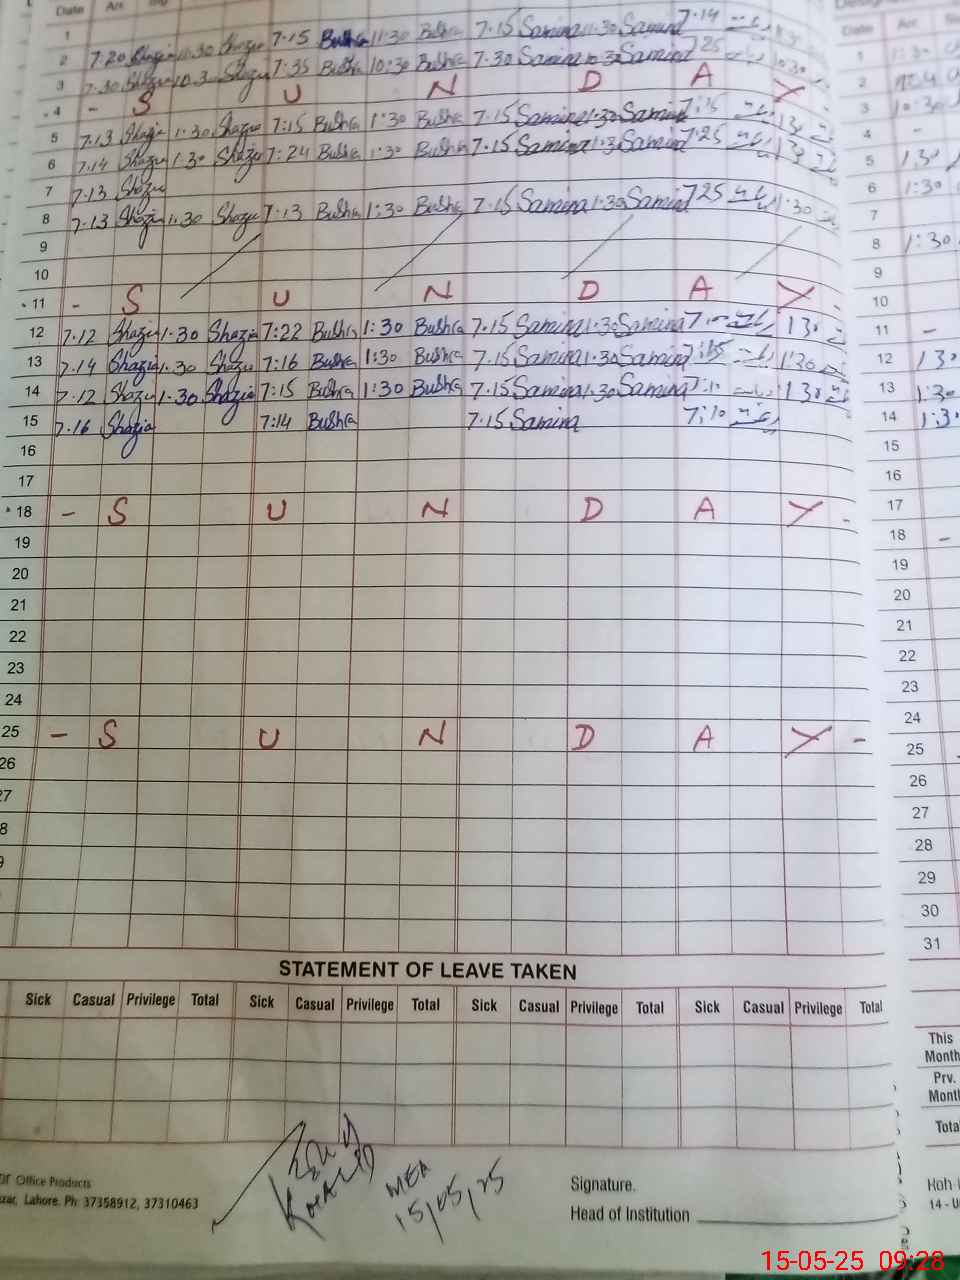 Date Arr.
1
2 7.20 Shazia 11.30 Shazia 7.15 Bushra 11:30 Bushra 7.15 Samina 11.30 Samina 7.14
3 7.30 Shazia 10.3 Shazia 7:35 Bushra 10:30 Bushra 7.30 Samina 10.3 Samina 7 25
4 - S U N D A Y
5 7.13 Shazia 1.30 Shazia 7:15 Bushra 1:30 Bushra 7.15 Samina 1.30 Samina 7:15
6 7.14 Shazia 1.30 Shazia 7:24 Bushra 1:30 Bushra 7.15 Samina 1.30 Samina 7.25
7 7.13 Shazia
8 7.13 Shazia 1.30 Shazia 7:13 Bushra 1:30 Bushra 7.15 Samina 1.30 Samina 7 25 1:30
9
10
11 - S U N D A Y -
12 7.12 Shazia 1.30 Shazia 7:22 Bushra 1:30 Bushra 7.15 Samina 1.30 Samina 1 30
13 7.14 Shazia 1.30 Shazia 7:16 Bushra 1:30 Bushra 7.15 Samina 1.30 Samina 7:15 1:30
14 7.12 Shazia 1.30 Shazia 7:15 Bushra 1:30 Bushra 7.15 Samina 1.30 Samina 7:10 1 30
15 7.16 Shazia 7:14 Bushra 7.15 Samina 7:10
16
17
18 - S U N D A Y -
19
20
21
22
23
24
25 - S U N D A Y -
26
27
Date Arr.
1 1:30
2
3 10:30
4 -
5 1:30
6 1:30
7
8 1:30
9
10
11 -
12 1 30
13 1:30
14 1:30
15
16
17
18 -
19
20
21
22
23
24
25
26
27
28
29
30
31
STATEMENT OF LEAVE TAKEN
Sick Casual Privilege Total Sick Casual Privilege Total Sick Casual Privilege Total Sick Casual Privilege Total
This Month
Prv. Month
Total
MEA
15/05/25
Office Products
Lahore. Ph: 37358912, 37310463
Signature.
Head of Institution
15-05-25 09:28